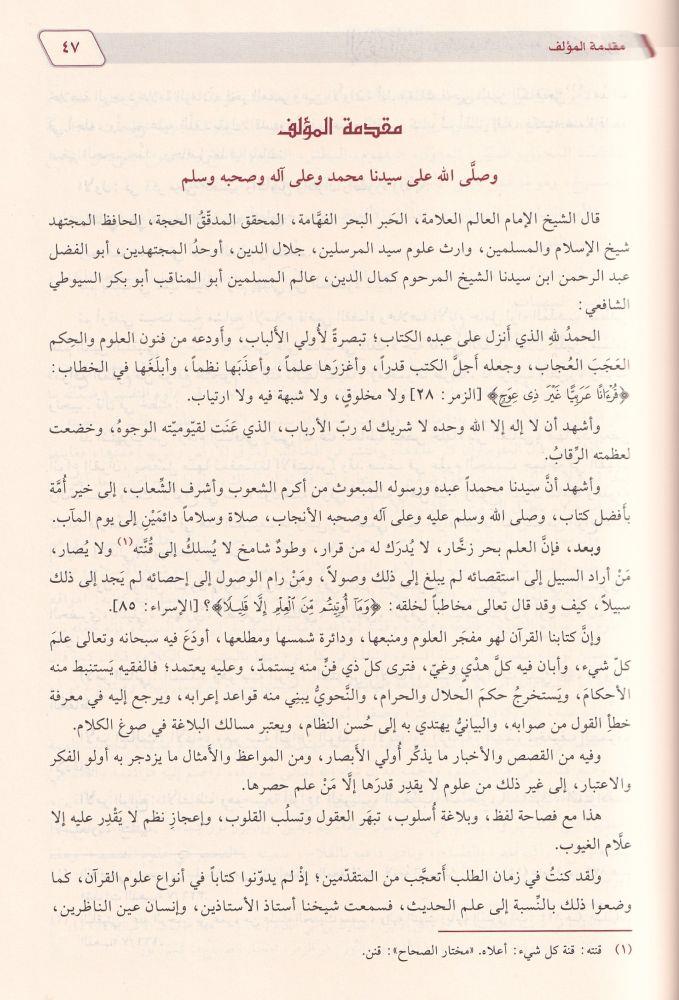 مقدمة المؤلف
٤٧
مقدمة المؤلف
وصلَّى الله على سيدنا محمد وعلى آله وصحبه وسلم
قال الشيخ الإمام العالم العلامة، الحَبر البحر الفهَّامة، المحقق المدقِّقُ الحجة، الحافظ المجتهد
شيخ الإسلام والمسلمين، وارث علوم سيد المرسلين، جلال الدين، أوحدُ المجتهدين، أبو الفضل
عبد الرحمن ابن سيدنا الشيخ المرحوم كمال الدين، عالم المسلمين أبو المناقب أبو بكر السيوطي
الشافعي:
الحمدُ للهِ الذي أَنزل على عبده الكتاب؛ تبصرةً لأُولي الألباب، وأَودعه من فنون العلوم والحِكم
العَجَبَ العُجاب، وجعله أَجلَّ الكتب قدراً، وأَغزرَها علماً، وأَعذَبَها نظماً، وأَبلَغَها في الخطاب:
﴿قُرْءَانًا عَرَبِيًّا غَيْرَ ذِى عِوَجٍ﴾ [الزمر: ٢٨] ولا مخلوقٍ، ولا شبهة فيه ولا ارتياب.
وأشهد أن لا إله إلا الله وحده لا شريك له ربّ الأرباب، الذي عَنَت لقيّوميّته الوجوهُ، وخضعت
لعظمته الرِّقابُ.
وأشهد أنَّ سيدنا محمداً عبده ورسوله المبعوث من أكرم الشعوب وأشرف الشِّعاب، إلى خير أُمَّة
بأَفضل كتاب، وصلى الله وسلم عليه وعلى آله وصحبه الأنجاب، صلاة وسلاماً دائمَيْنِ إلى يوم المآب.
وبعد، فإنَّ العلم بحر زخَّار، لا يُدرَك له من قرار، وطودٌ شامخ لا يُسلكُ إلى قُنَّته(١) ولا يُصار،
مَنْ أراد السبيل إلى استقصائه لم يبلغ إلى ذلك وصولاً، ومَنْ رام الوصول إلى إحصائه لم يَجد إلى ذلك
سبيلاً، كيف وقد قال تعالى مخاطباً لخلقه: ﴿وَمَآ أُوتِيتُم مِّنَ ٱلْعِلْمِ إِلَّا قَلِيلًا﴾؟ [الإسراء: ٨٥].
وإنَّ كتابنا القرآن لهو مفجَر العلوم ومنبعها، ودائرة شمسها ومطلعها، أودَعَ فيه سبحانه وتعالى علمَ
كلّ شيء، وأبان فيه كلَّ هدْيٍ وغيّ، فترى كلّ ذي فنٍّ منه يستمدّ، وعليه يعتمد؛ فالفقيه يَستنبط منه
الأحكامَ، ويَستخرجُ حكمَ الحلال والحرام، والنَّحويُّ يبنِي منه قواعد إعرابه، ويرجع إليه في معرفة
خطأ القول من صوابه، والبيانيُّ يهتدي به إلى حُسن النظام، ويعتبر مسالك البلاغة في صوغ الكلام.
وفيه من القصص والأخبار ما يذكِّر أُولي الأبصار، ومن المواعظ والأَمثال ما يزدجر به أولو الفكر
والاعتبار، إلى غير ذلك من علوم لا يقدِر قدرَها إلَّا مَنْ علم حصرها.
هذا مع فصاحة لفظ، وبلاغة أُسلوب، تبهَر العقول وتسلُب القلوب، وإعجازِ نظم لا يَقْدِر عليه إلا
علَّام الغيوب.
ولقد كنتُ في زمان الطلب أَتعجَّب من المتقدّمين؛ إذْ لم يدوّنوا كتاباً في أنواع علوم القرآن، كَما
وضعوا ذلك بالنِّسبة إلى علم الحديث، فسمعت شيخنا أستاذ الأستاذين، وإنسان عين الناظرين،
(١) قنته: قنة كل شيء: أعلاه. «مختار الصحاح»: قنن.